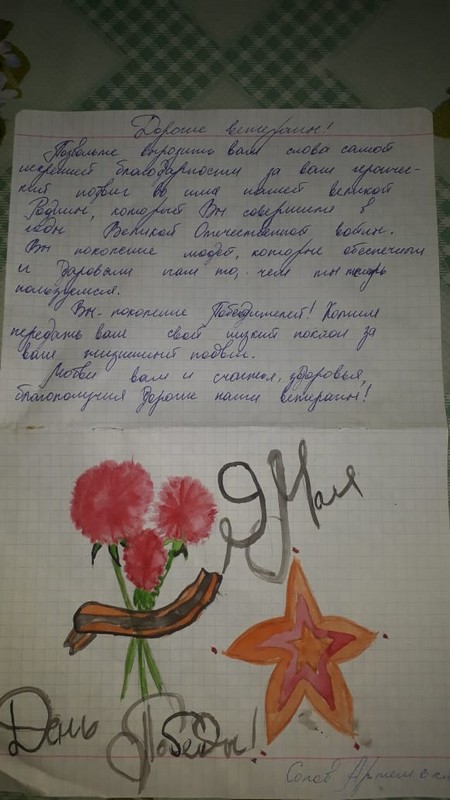 Дорогие ветераны!
Позвольте выразить вам слова самой
искренней благодарности за ваш героичес-
кий подвиг во имя нашей великой
Родины, который Вы совершили в
годы Великой Отечественной войны.
Вы поколение людей, которые обеспечили
и даровали нам то, чем мы теперь
пользуемся.
Вы - поколение Победителей! Хотим
передать вам свой низкий поклон за
ваш жизненный подвиг.
Любви вам и счастья, здоровья,
благополучия дорогие наши ветераны!
9 Мая
День Победы!
Артем